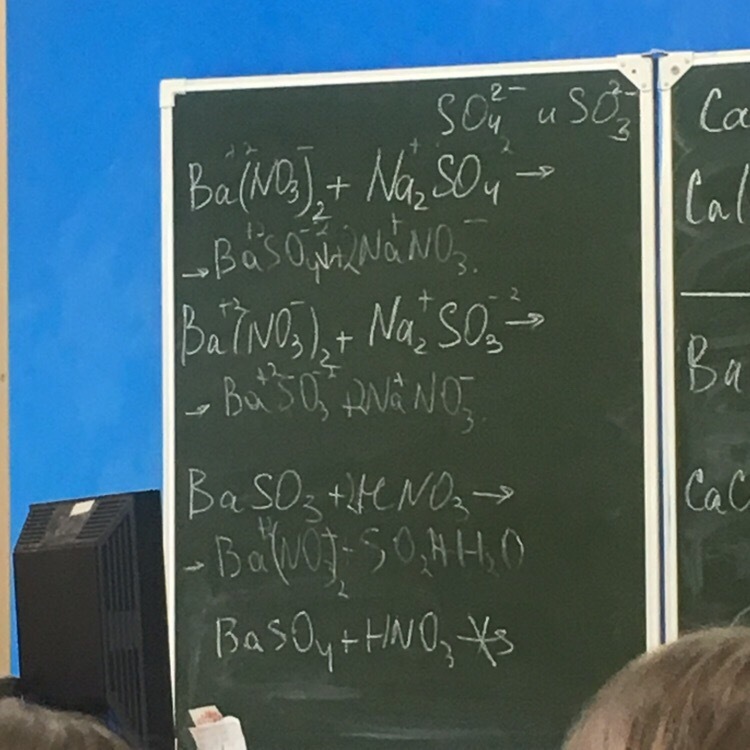 SO₄²⁻ и SO₃²⁻
Ba⁺²(NO₃⁻)₂ + Na₂⁺SO₄⁻² →
→ Ba⁺²SO₄⁻²↓ + 2Na⁺NO₃⁻.
Ba⁺²(NO₃⁻)₂ + Na₂⁺SO₃⁻² →
→ Ba⁺²SO₃⁻² + 2Na⁺NO₃⁻.
BaSO₃ + 2HNO₃ →
→ Ba(NO₃)₂ SO₂ H₂O
BaSO₄ + HNO₃
Ca
Ca(
Ba
CaC